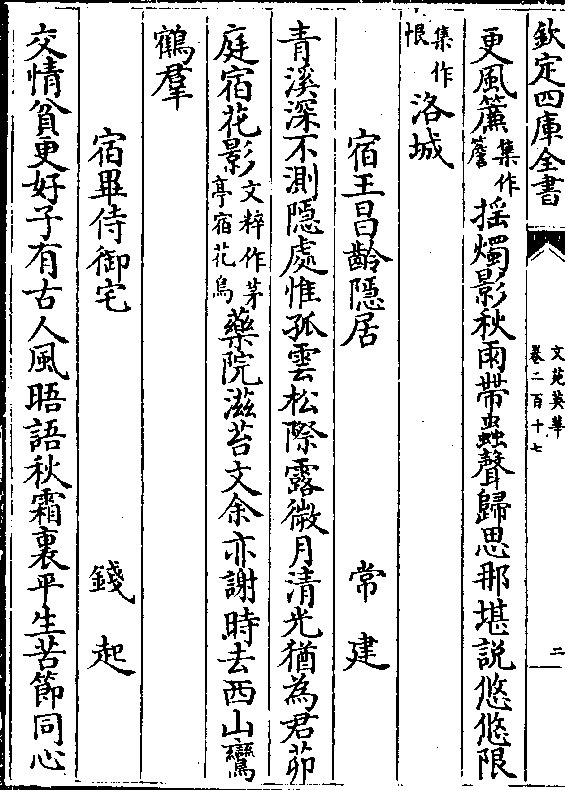 欽定四庫全書
文苑英華
卷二百十七
二
更風簾集作簷搖燭影秋雨帶蟲聲歸思那堪說悠悠限
集作恨洛城
宿王昌齡隱居 常建
青溪深不測隱處惟孤雲松際露微月清光猶為君茆
庭宿花影文粹作茅亭宿花鳥藥院滋苔文余亦謝時去西山鸞
鶴羣
宿畢侍御宅 錢起
交情貧更好子有古人風晤語秋霜裏平生苦節同心